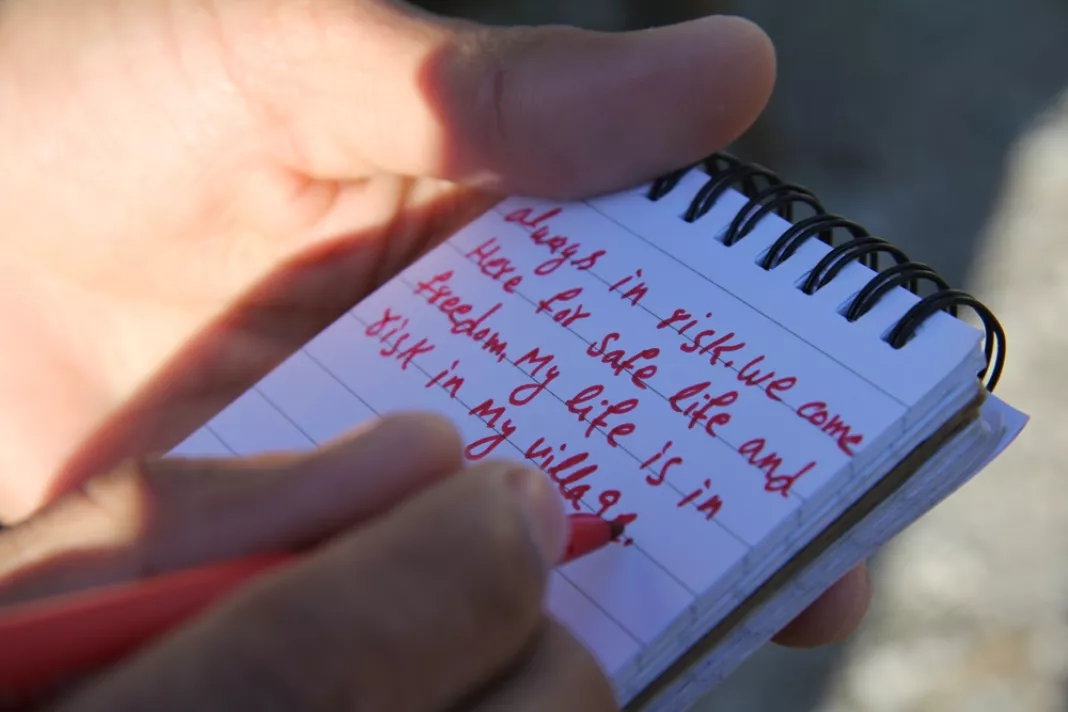 always in risk. We come
Here for safe life and
freedom, My life is in
risk in my village.